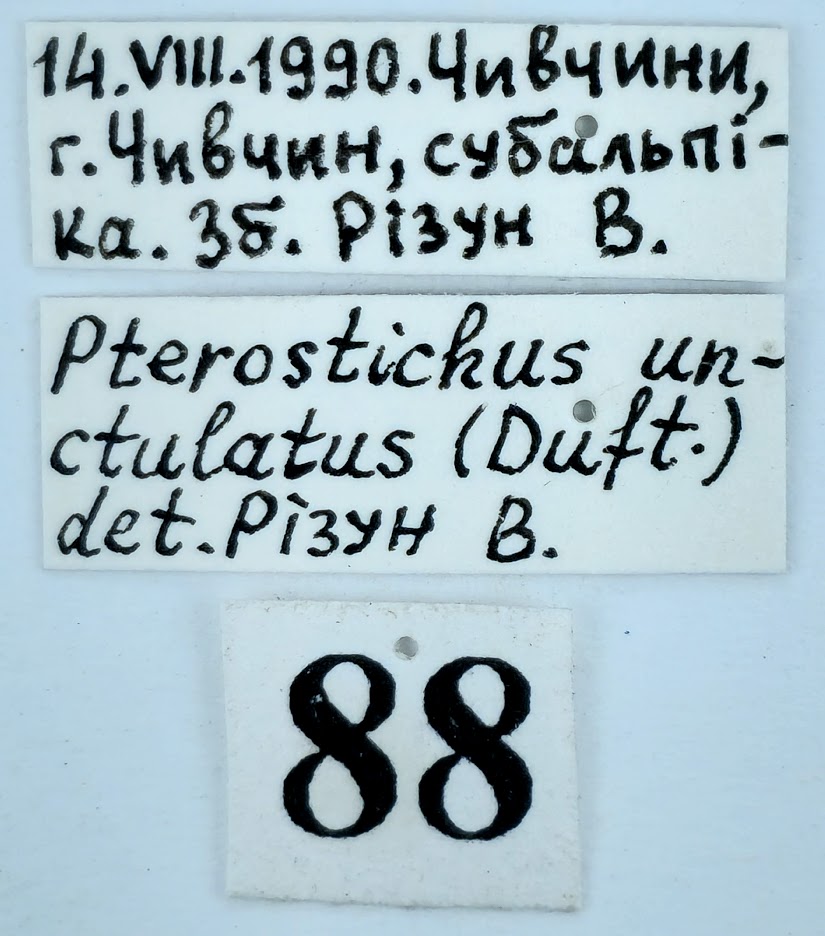 14.VIII.1990.Чивчини,
г.Чивчин, субальпі-
ка. Зб. Різун В.
Pterostichus un-
ctulatus (Duft.)
det. Різун В.
88